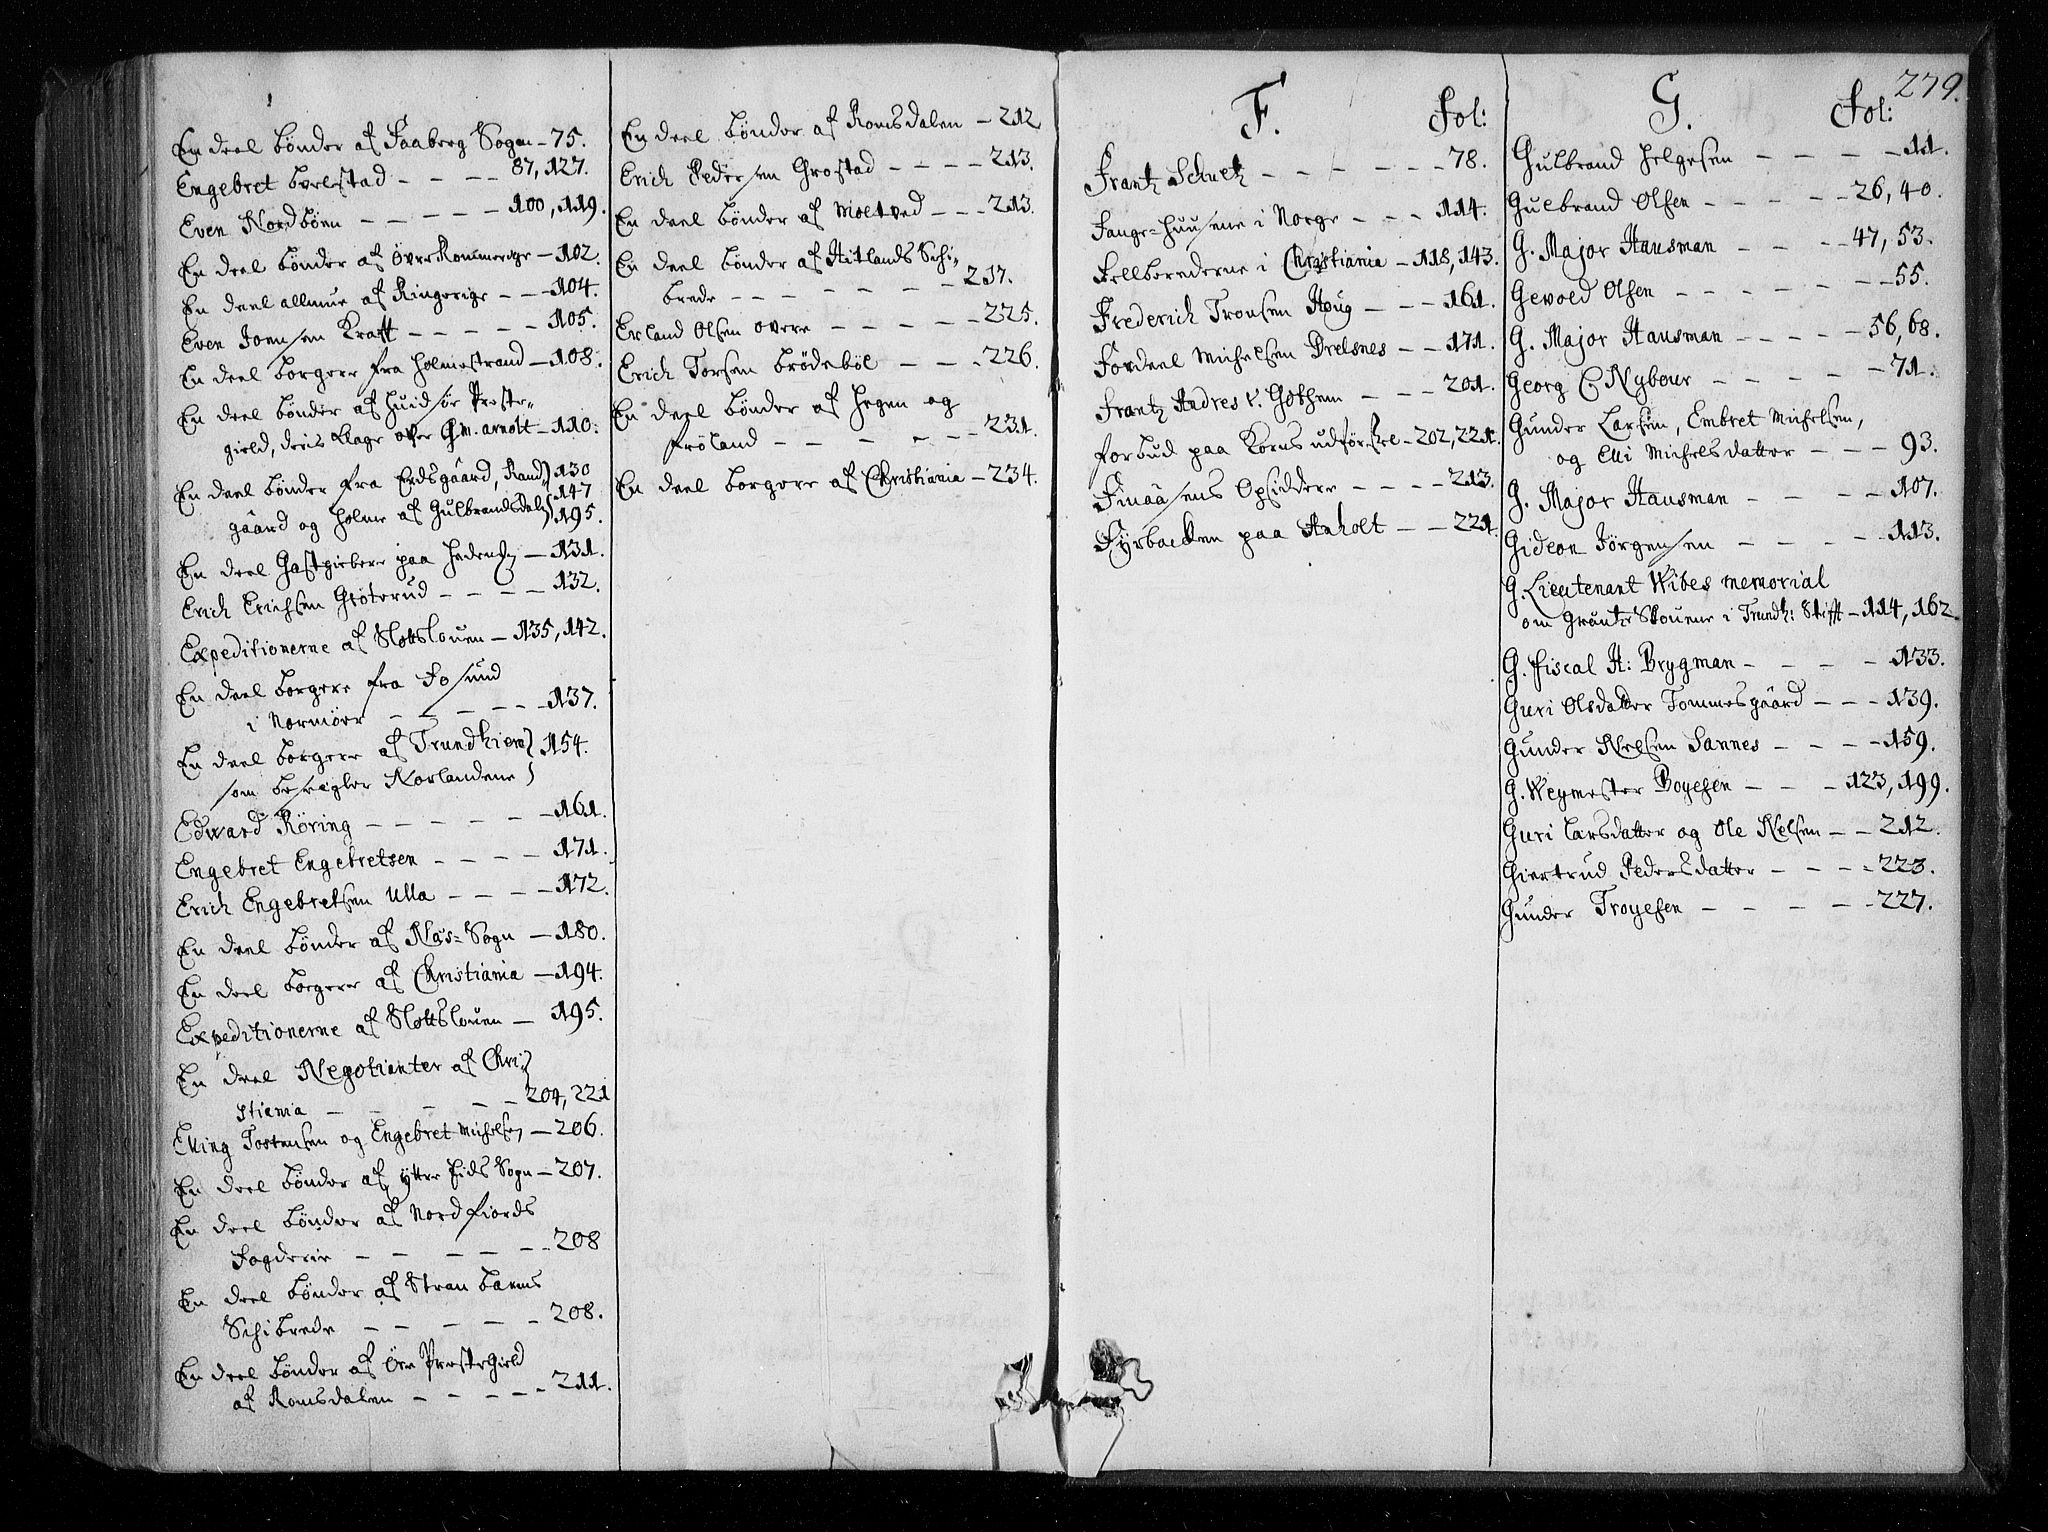 En deel bønder af Faaberg Sogn – 75.
Engebret – – – – 87, 127.
Even Nordbøen – – – – – 100, 119.
En deel bønder af Øvre Rommerige – 102.
En deel allmue af Ringerige – – – 104.
Even Joensen Krafft – – – – – 105.
En deel borgere fra Holmestrand – 108.
En deel bønder af Huidsøe Præste-
gield, deris Klage over Gm. arnolt – 110.
En deel bønder fra Rand- } 130
gaard og Holme af Gulbrandsdal } 147
195.
En deel Gastgiebere paa – 131.
Erich Erichsen Grøterud – – – – 132.
Expeditionerne af Slottslouen – 135, 142.
En deel borgere fra Fosund
i Normøer – – – – – – 137.
En deel borgere af Trundhiem } 154.
som beseigler Norlandene }
Edward Røring – – – – – – 161.
Engebret Engebretsen – – – – 171.
Erich Engebretsen Ulla – – – – 172.
En deel bønder af Næs-Sogn – 180.
En deel borgere af Christiania – 194.
Expeditionerne af Slottslouen – 195.
En deel Negotianter af Chri- }
stiania – – – – – 204, 221
Elling Tostensen og Engebret Michelsen – 206.
En deel bønder af ytter Sogn – 207.
En deel bønder af Nordfiords
Fogderie – – – – – – 208
En deel bønder af Stran barms
Schibrede – – – – – 208.
En deel bønder af Præstegield
af Romsdalen – – – – – 211.
En deel bønder af Romsdalen – 212
Erich Pedersen Grostad – – – – 213.
En deel bønder af Moltved – – – 213.
En deel bønder af Hitlands Schi-
brede – – – – – – – 217.
Erland Olsen overe – – – – – 225.
Erich Torsen brødebøl – – – 226.
En deel bønder af Hegen og
Frøland – – – – – – 231.
En deel borgere af Christiania – 234.
F. Fol:
Frantz Schultz – – – – – – 78.
Fange-Huusene i Norge – – – 114.
Fellberederne i Christiania – 118, 143.
Frederich Tronsen Haug – – – 161.
Michelsen – – 171.
Frantz Andres v. Gøthem – – – 201.
forbud paa Korns udførsel – 202, 221.
Finaasens Opsiddere – – – – 213.
Fyrbacken paa Anholt – – – 221.
279.
G. Fol:
Gulbrand Helgesen – – – – – 11.
Gulbrand Olsen – – – – – 26, 40.
G. Major Hausman – – – – 47, 53.
Gevold Olsen – – – – – – 55.
G. Major Hausman – – – – – 56, 68.
Georg C Nybour – – – – – 71.
Gunder Larsen, Embret Michelsen,
og Elli Michelsdatter – – – 93.
G. Major Hausman – – – – 107.
Gideon Jørgensen – – – – – 113.
G. Lieutenant Wibes memorial
om Grantze Skouene i Trundh: Stifft – 114, 162.
G. fiscal H: Brygman – – – – 133.
Guri Olsdatter Tommesgaard – – – 139.
Gunder Nelsen Sannes – – – – 159.
G. Weymester Boyesen – – – 123, 199.
Guri Larsdatter og Ole Nelsen – – 212.
Giertrud Pedersdatter – – – – 223.
Gunder Troyesen – – – – – – 227.